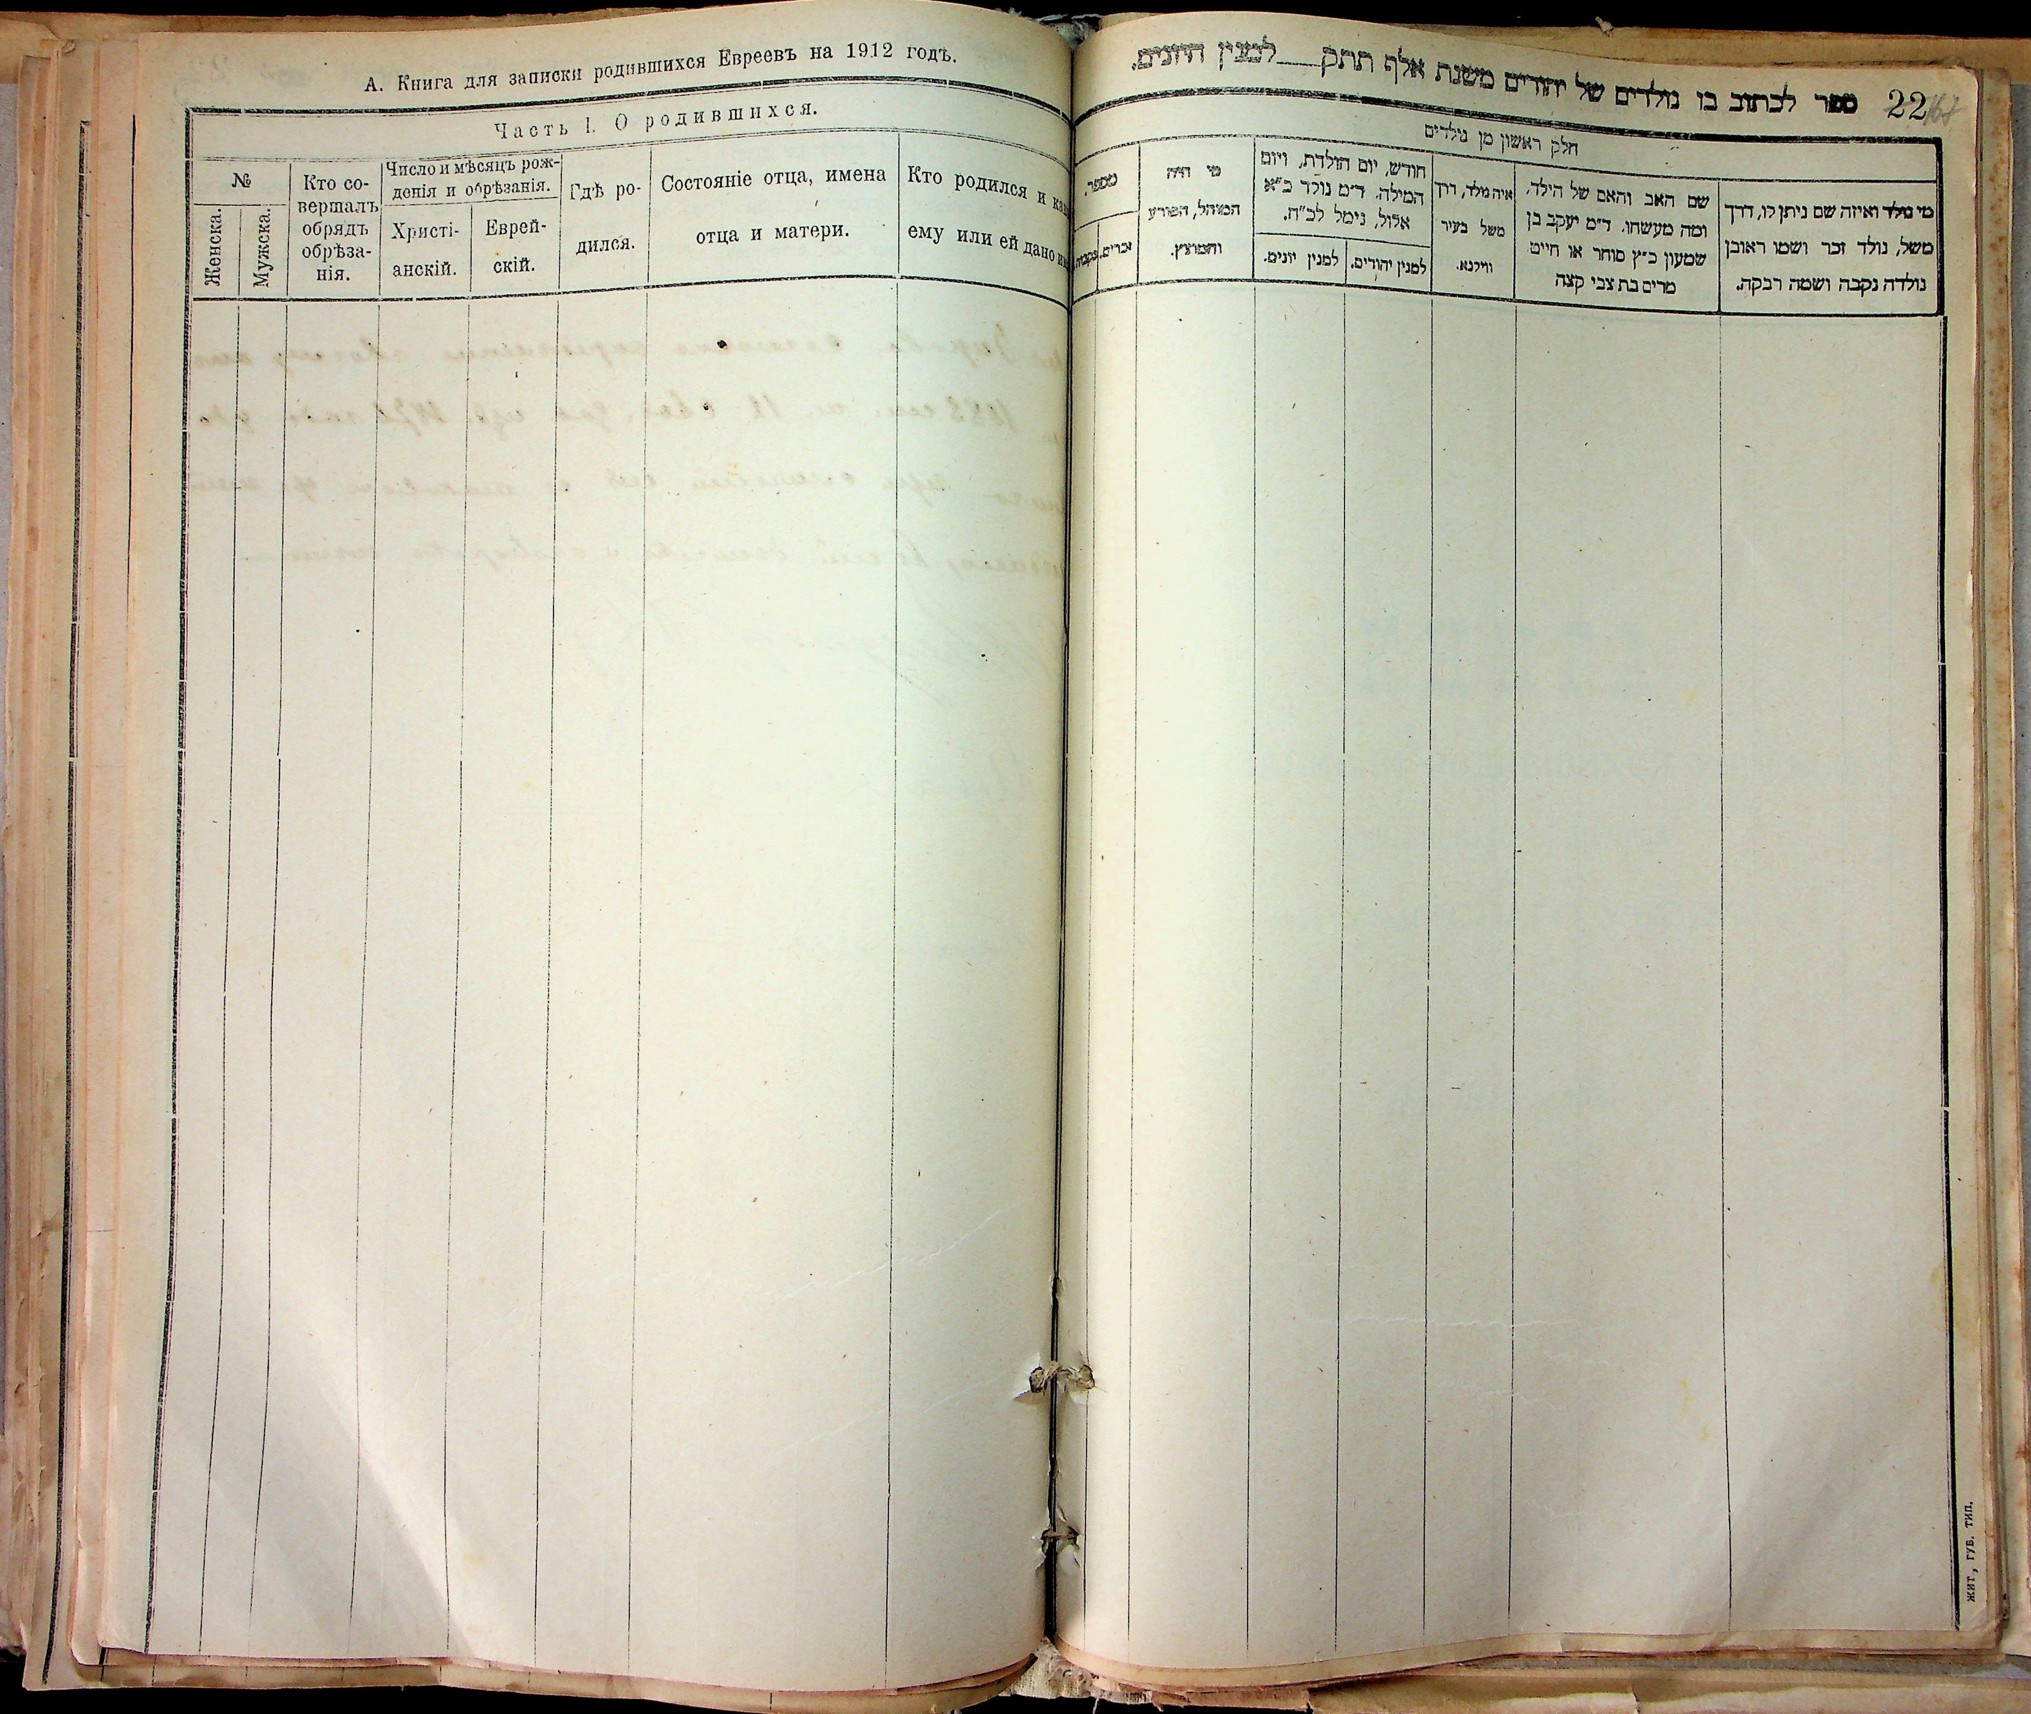 А. Книга для записки родившихся Евреевъ на 1912 годъ.
Часть I. О родившихся.
№
Женска.
Мужска.
Кто со-
вершалъ
обрядъ
обрѣза-
нія.
Число и мѣсяцъ рож-
денія и обрѣзанія.
Христі-
анскій.
Еврей-
скій.
Гдѣ ро-
дился.
Состояніе отца, имена
отца и матери.
Кто родился и
ему или ей дано
22
ספר לכתוב בו נולדים של יהודים משנת אלף תתק___למנין היונים.
חלק ראשון מן נולדים
מי נולד ואיזה שם ניתן לו, דרך
משל, נולד זכר ושמו ראובן
נולדה נקבה ושמה רבקה.
שם האב והאם של הילד,
ומה מעשהו. ד״מ יעקב בן
שמעון כ״ץ סוחר או חייט
מרים בת צבי קצה
איה נולד, דרך
משל בעיר
ווילנא.
חודש, יום הולדת, ויום
המילה. ד״מ נולד כ״א
אלול, נימל לכ״ח.
למנין יהודים.
למנין יונים.
מי היה
המוהל, הפורע
והמוצץ.
מספר.
זכרים.
נקבות.
ЖИТ, ГУБ. ТИП.